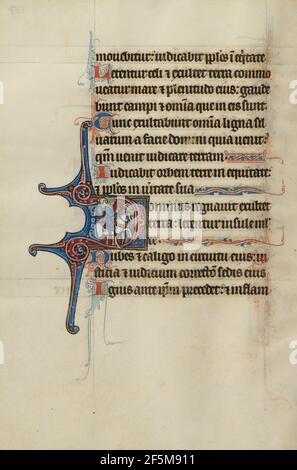 movebitur: iudicabit pplos ī eq̄itate
Letentur celi et exultet terra commo
veatur mare et plenitudo eius: gaude
bunt campi et om̄ia que in eis sunt.
Tunc exultabunt omnia ligna sil
uarum a facie domini quia uenit:
qm̄ uenit iudicare terram
Iudicabit orbem terre in equitate:
et pplos in ueritate sua
Dominus regnauit exultet
terra: letentur insule mlī
Nubes et caligo in circuitu eius: iu
sticia et iudicium correctio sedis eius
Ignis ante ip̄m precedet: et inflam
alamy
Image ID: 2F5M911
www.alamy.com